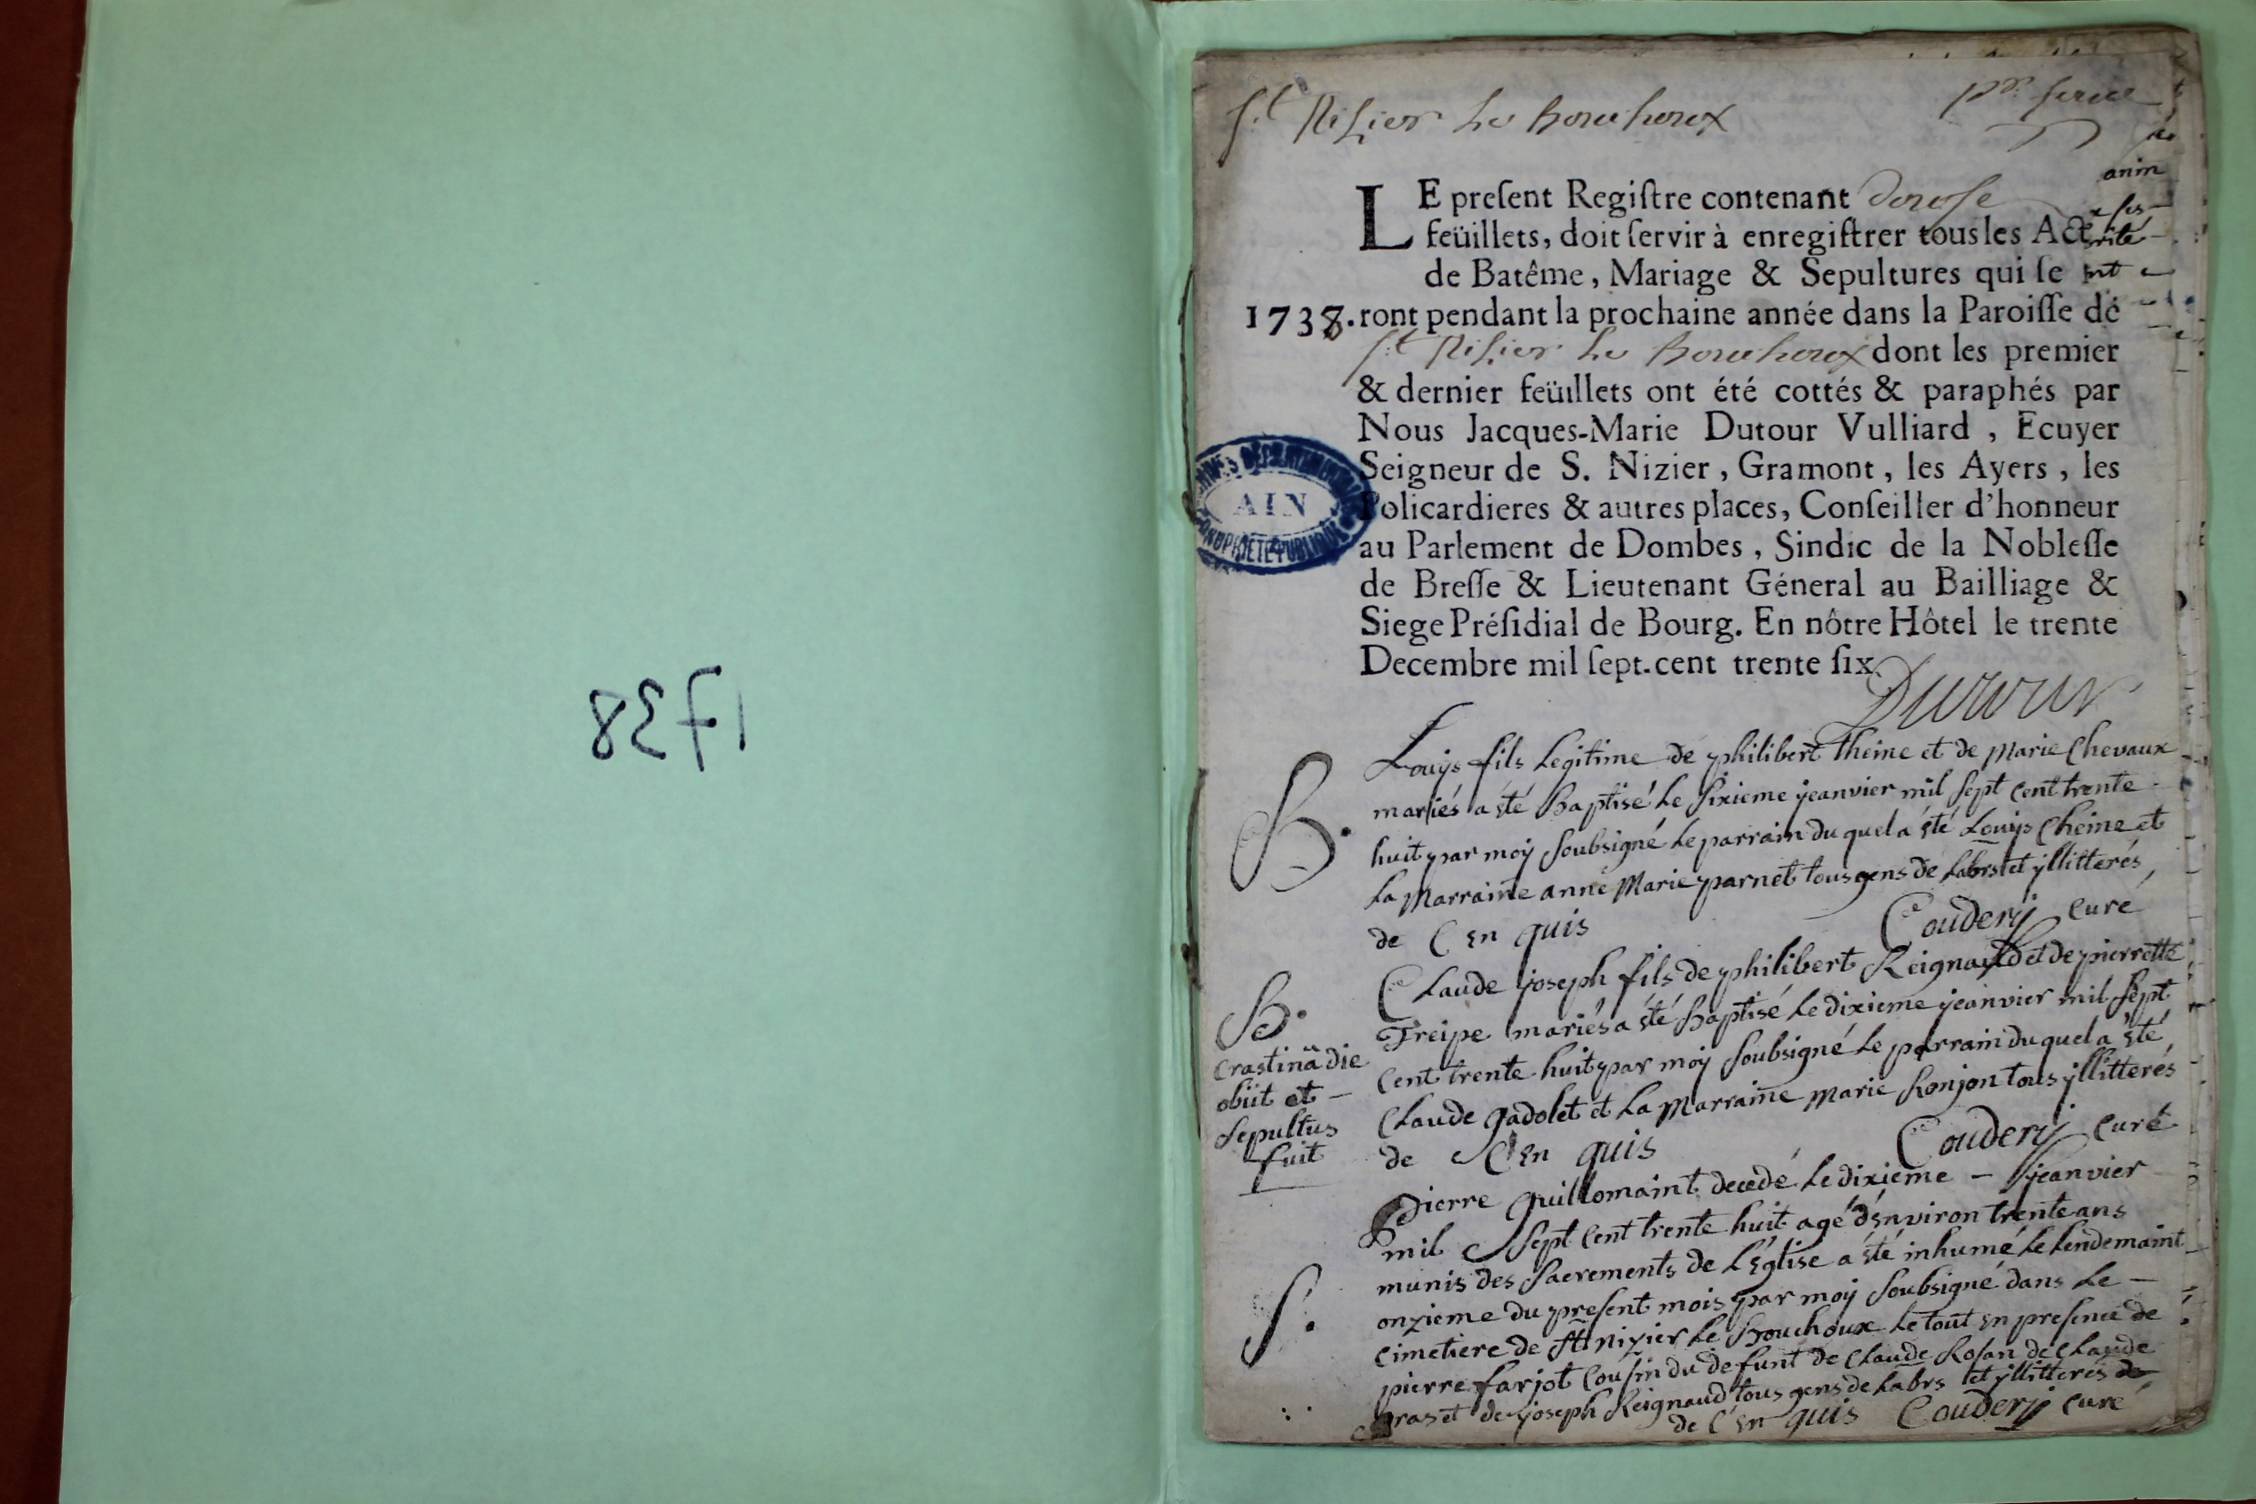 1738
St Nisier Le Bouchoux
LE preſent Regiſtre contenant douſe
feüillets, doit ſervir à enregiſtrer tous les Act
de Batême, Mariage & Sepultures qui ſe
1738. ront pendant la prochaine année dans la Paroiſſe de
St Nisier Le Bouchoux dont les premier
& dernier feüillets ont été cottés & paraphés par
Nous Jacques-Marie Dutour Vulliard, Ecuyer
Seigneur de S. Nizier, Gramont, les Ayers, les
Policardieres & autres places, Conſeiller d'honneur
au Parlement de Dombes, Sindic de la Nobleſſe
de Breſſe & Lieutenant Géneral au Bailliage &
Siege Préſidial de Bourg. En nôtre Hôtel le trente
Decembre mil ſept-cent trente ſix.
Dutour
ARCHIVES DÉPARTEMENTALES
AIN
PROPRIÉTÉ PUBLIQUE
B.
Louys fils legitime de philibert theine et de Marie Chevaux
mariés a été Baptisé le sixieme jeanvier mil sept cent trente
huit par moÿ soubsigné le parrain du quel a été Louys theine et
la Marraine anne Marie parnet tous gens de labrs et yllitterés
de ce en quis Couderÿ curé
B.
crastinâ die
obiit et
sepultus
fuit
Claude joseph fils de philibert Reignaud et de pierrette
Treipe mariés a été Baptisé le dixieme jeanvier mil sept
cent trente huit par moÿ soubsigné le parrain du quel a été
Claude gadolet et la Marraine Marie Ronjon tous yllitterés
de ce en quis Couderÿ curé
S.
Pierre guillomaint decedé le dixieme – jeanvier
mil sept cent trente huit agé d'environ trente ans
munis des sacrements de l'église a été inhumé le lendemaint
onzieme du present mois par moÿ soubsigné dans le –
cimetiere de St nizier le Bouchoux le tout en presence de
pierre farjot cousin du defunt de claude Rosan de claude
gras et de joseph Reignaud tous gens de labrs et yllitterés de
de ce en quis Couderÿ curé